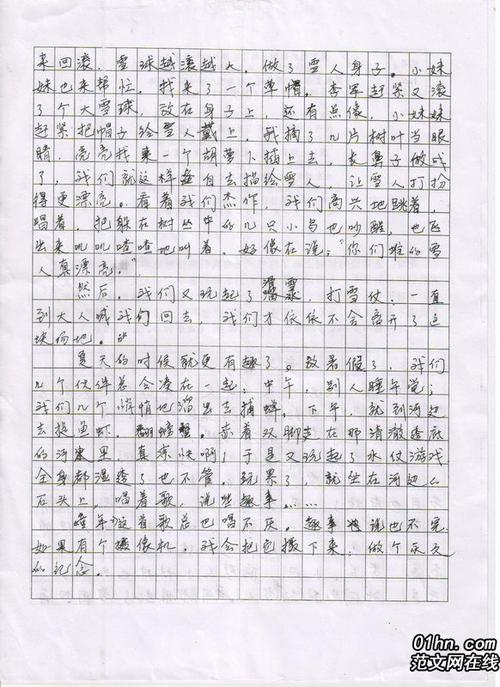 来回滚，雪球越滚越大。做了雪人身子。小妹
妹也来帮忙。找来了一个草帽。李军赶紧又滚
了个大雪球，放在身子上，还有点像，小妹妹
赶紧把帽子给雪人戴上，我摘了几片树叶当眼
睛，亮亮找来一个胡萝卜插上去，长鼻子做成
了，我们就这样各自去描绘雪人，让雪人打扮
得更漂亮。看着我们杰作，我们高兴地跳着，
唱着，把躲在树丛中的几只小鸟也吵醒，也飞
出来叽叽喳喳地叫着，好像在说："你们堆的雪
人真漂亮。"
然后，我们又玩起了滑雪，打雪仗，一直
到大人喊我们回去，我们才依依不舍离开了这
块场地。
夏天的时候就更有趣了。放暑假了，我们
几个伙伴总会凑在一起，中午，别人睡午觉；
我们几个悄悄地溜出去捕蝉。下午，就到河边
去捉鱼虾、螃蟹。赤着双脚走在那清澈透底
的河水里，真凉快啊！于是又玩起了水仗游戏
全身都湿透了也不管。玩累了，就坐在河边的
石头上，唱着歌，说些趣事……
童年这着歌总也唱不厌。趣事说也不完
如果有个摄像机，我会把它摄下来，做个永久
的记念。
01hn.com
范文网在线